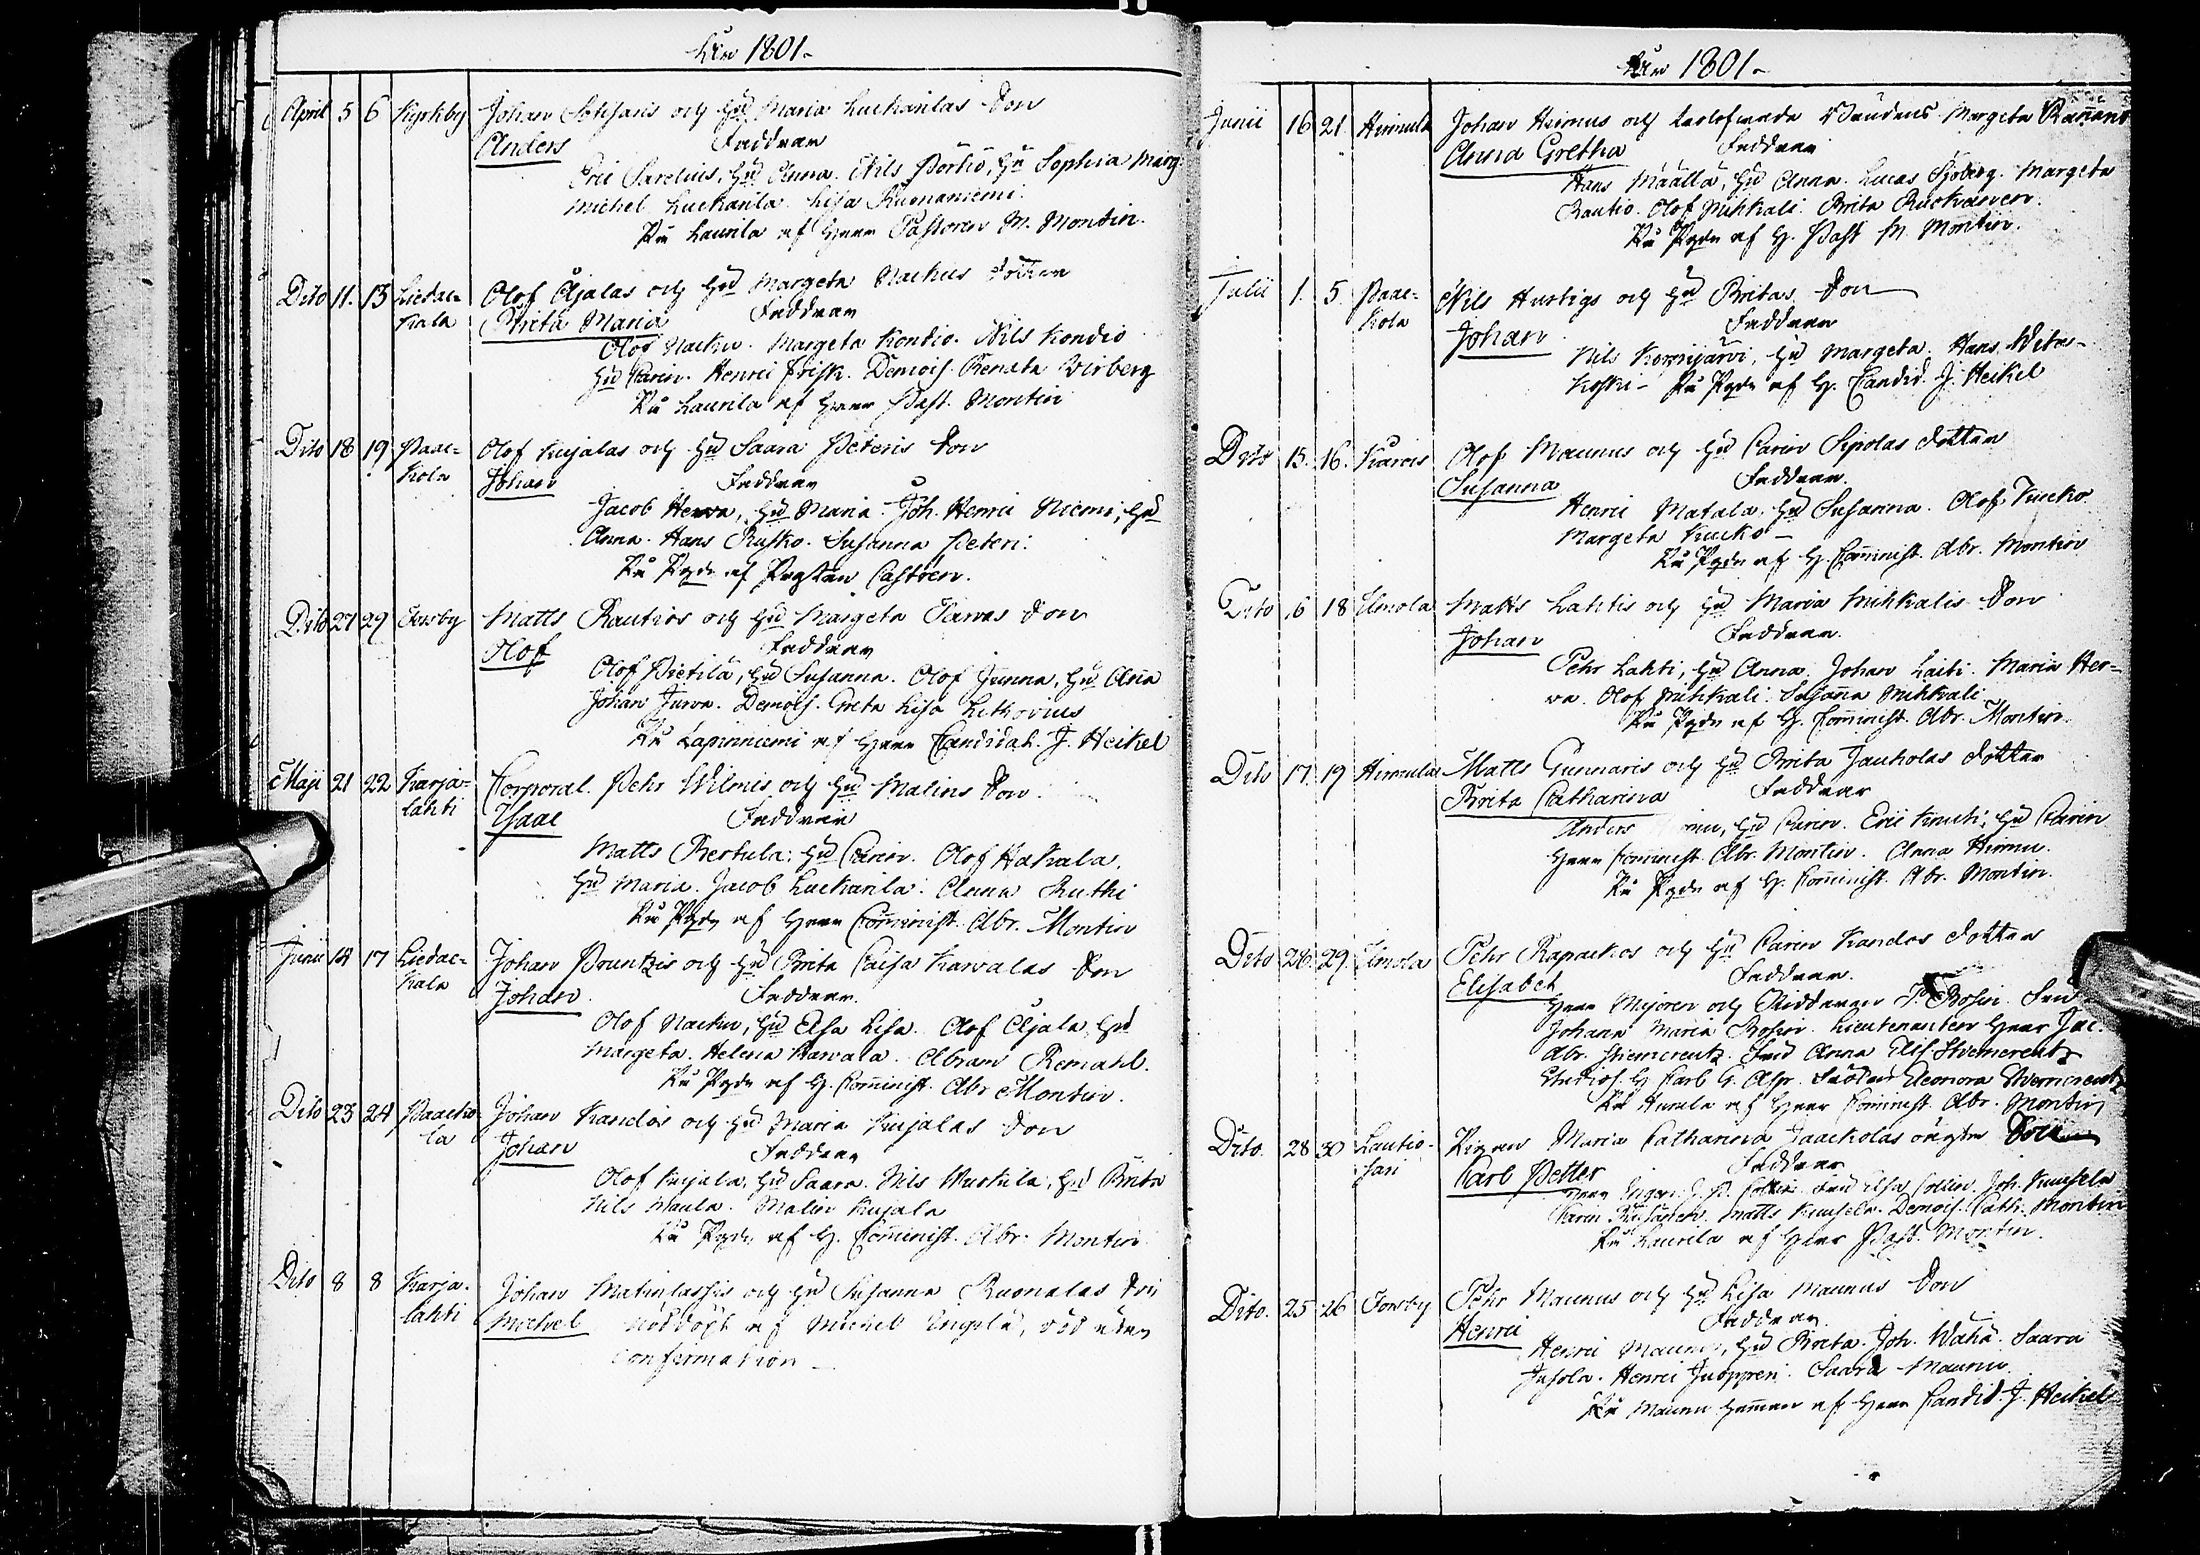 År 1801.
April 5 6 Kyrkby Johan och Hu Maria Luckarilas Son
Anders Faddrar
Eric Sarelius, Hu Anna. Nils Pörhö, Hu Sophia Marg.
Michel Luckarila. Lisa Kumaniemi.
På Laurila af Herr Pastoren M. Montin.
Dito 11. 13 Liedac=kala Olof Äljalas och Hu Margeta Nackus Dotter
Brita Maria Faddrar
Olof Nacku. Margeta Kondio. Nils Kondio
Hu Carin. Henric Frisk. Demois. Renata Wirberg
På Laurila af Herr Past. Montin
Dito 18 19 Paac=kola Olof Kujalas och Hu Saara Peteris Son
Johan Faddrar
Jacob Herva, Hu Maria. Joh. Henric Niemi, Hu
Anna. Hans Rusko. Susanna Peteri.
På af Castrén.
Dito 27 29 Torby Matts Rautios och Hu Margeta Son
Olof Faddrar
Olof Pietilä, Hu Susanna. Olof Junna, Hu Aña
Johan Demois. Greta Lisa Lithovius
På Lapinniemi af Herr Candidat. J. Heikel
Maji 21 22 Karja=lahti Corporal. Pehr Wilmis och Hu Malins Son
Isaac Faddrar
Matts Bertula. Hu Carin. Olof Hakala.
Hu Maria. Jacob Luckarila. Anna Ruthi
På af Herr Cominist. Abr. Montin
Junii 14 17 Liedac=kala Johan Pruntzis och Hu Brita Caisa Karvalas Son
Johan. Faddrar.
Olof Nacku, Hu Elsa Lisa. Olof Äljala, Hu
Margeta. Helena Karvala. Abram Remahl.
På af H. Cominist. Abr Montin.
Dito 23 24 Paacko la Johan Kandos och Hu Maria Kujalas Son
Johan Faddrar
Olof Kujala, Hu Saara. Nils Wuokila, Hu Brita
Nils Maula. Malin Kujala
På af H. Cominist. Abr. Montin
Dito 8 8 Karja=lahti Johan Matinlassis och Hu Susanna Ruonalas
Michel Nöddöpt af Michel Engelä, död utan
confirmation

År 1801.
Junii 16 21. Hirmula Johan Hirmus och Margeta
Anna Gretha Faddrar
Hans Määttä, Hu Anna. Lucas Sjöberg. Margeta
Rautio. Olof Mikkali. Brita Ruokanen.
På af H. Past M. Montin.
Julii 1. 5. Paac=kola Nils Hurtigs och Hu Britas Son
Johan Faddrar
Nils Kornijärvi, Hu Margeta. Hans
koski. På af H. Candid. J. Heikel
Dito 15. 16. Olof Maunus och Hu Carin Sipolas Dotter
Susanna Faddrar.
Henric Matala, Hu Susanna. Olof Kucko
Margeta Kucko
På af H. Cominist. Abr. Montin
Dito 16 18 Ilmola Matts Lahtis och Hu Maria Mikkalis Son
Johan Faddrar.
Pehr Lahti, Hu Anna, Johan Laiti. Maria Her=
va. Olof Mikkali. Susaña Mikkali
På af H. Cominist. Abr. Montin.
Dito 17. 19 Hirmula Matts Gunnaris och Hu Brita Jauholas Dotter
Brita Catharina Faddrar
Anders Hu Carin. Eric Hu Carin
Herr Cominist. Abr. Montin. Anna Hirmu.
På af H. Cominist. Abr. Montin.
Dito 28. 29. Ilmola Pehr Rapackos och Hu Carin Kandos Dotter
Elisabet Faddrar.
Herr Majoren och Riddaren Fru
Johana Maria Lieutenanten Herr Jac.
Abr. Stierncreutz. Fru Anna Elis. Stierncreutz
Studios. H Carl G. Eleonora Stierncreutz
På af Herr Cominist. Abr. Montin
Dito. 28 30 Lautio=sari Pigan Maria Catharina Jaackolas Son
Carl Petter Faddrar
Herr Fru Elsa Joh. Kunsela
Carin Matts Kunsela. Demois. Cath. Montin
På Laurila af Herr Past. Montin.
Dito. 25 26 Torby Pehr Maunus och Hu Lisa Maunus Son
Henric Faddrar.
Henric Maunu, Hu Brita. Joh. Wähä. Saara
Jusola. Henric Juopperi. Saara Maunu
På Maunu hemman af Herr Candid. J. Heikel